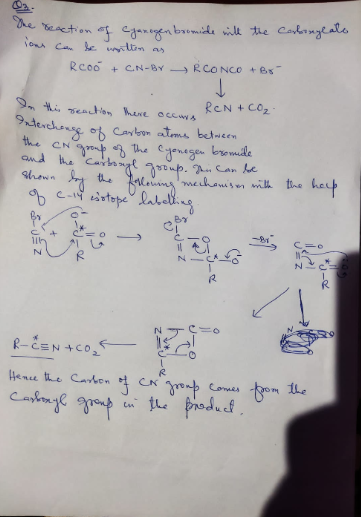 Q2.
The reaction of Cyanogen bromide with the Carboxylate
ions can be written as
RCOO⁻ + CN-Br → RCONCO + Br⁻
↓
RCN + CO₂
In this reaction there occurs
Interchange of Carbon atoms between
the CN group of the Cyanogen bromide
and the Carboxyl group. This can be
shown by the following mechanism with the help
of C-14 isotope labelling
Br O⁻
C + C* = O →
N R
Br
C - O
N - C* - O⁻
R
-Br⁻ →
C = O
N - C* = O
R
N - C = O
C* - O
R
R - C* ≡ N + CO₂ ←
Hence the Carbon of CN group comes from the
Carboxyl group in the product.